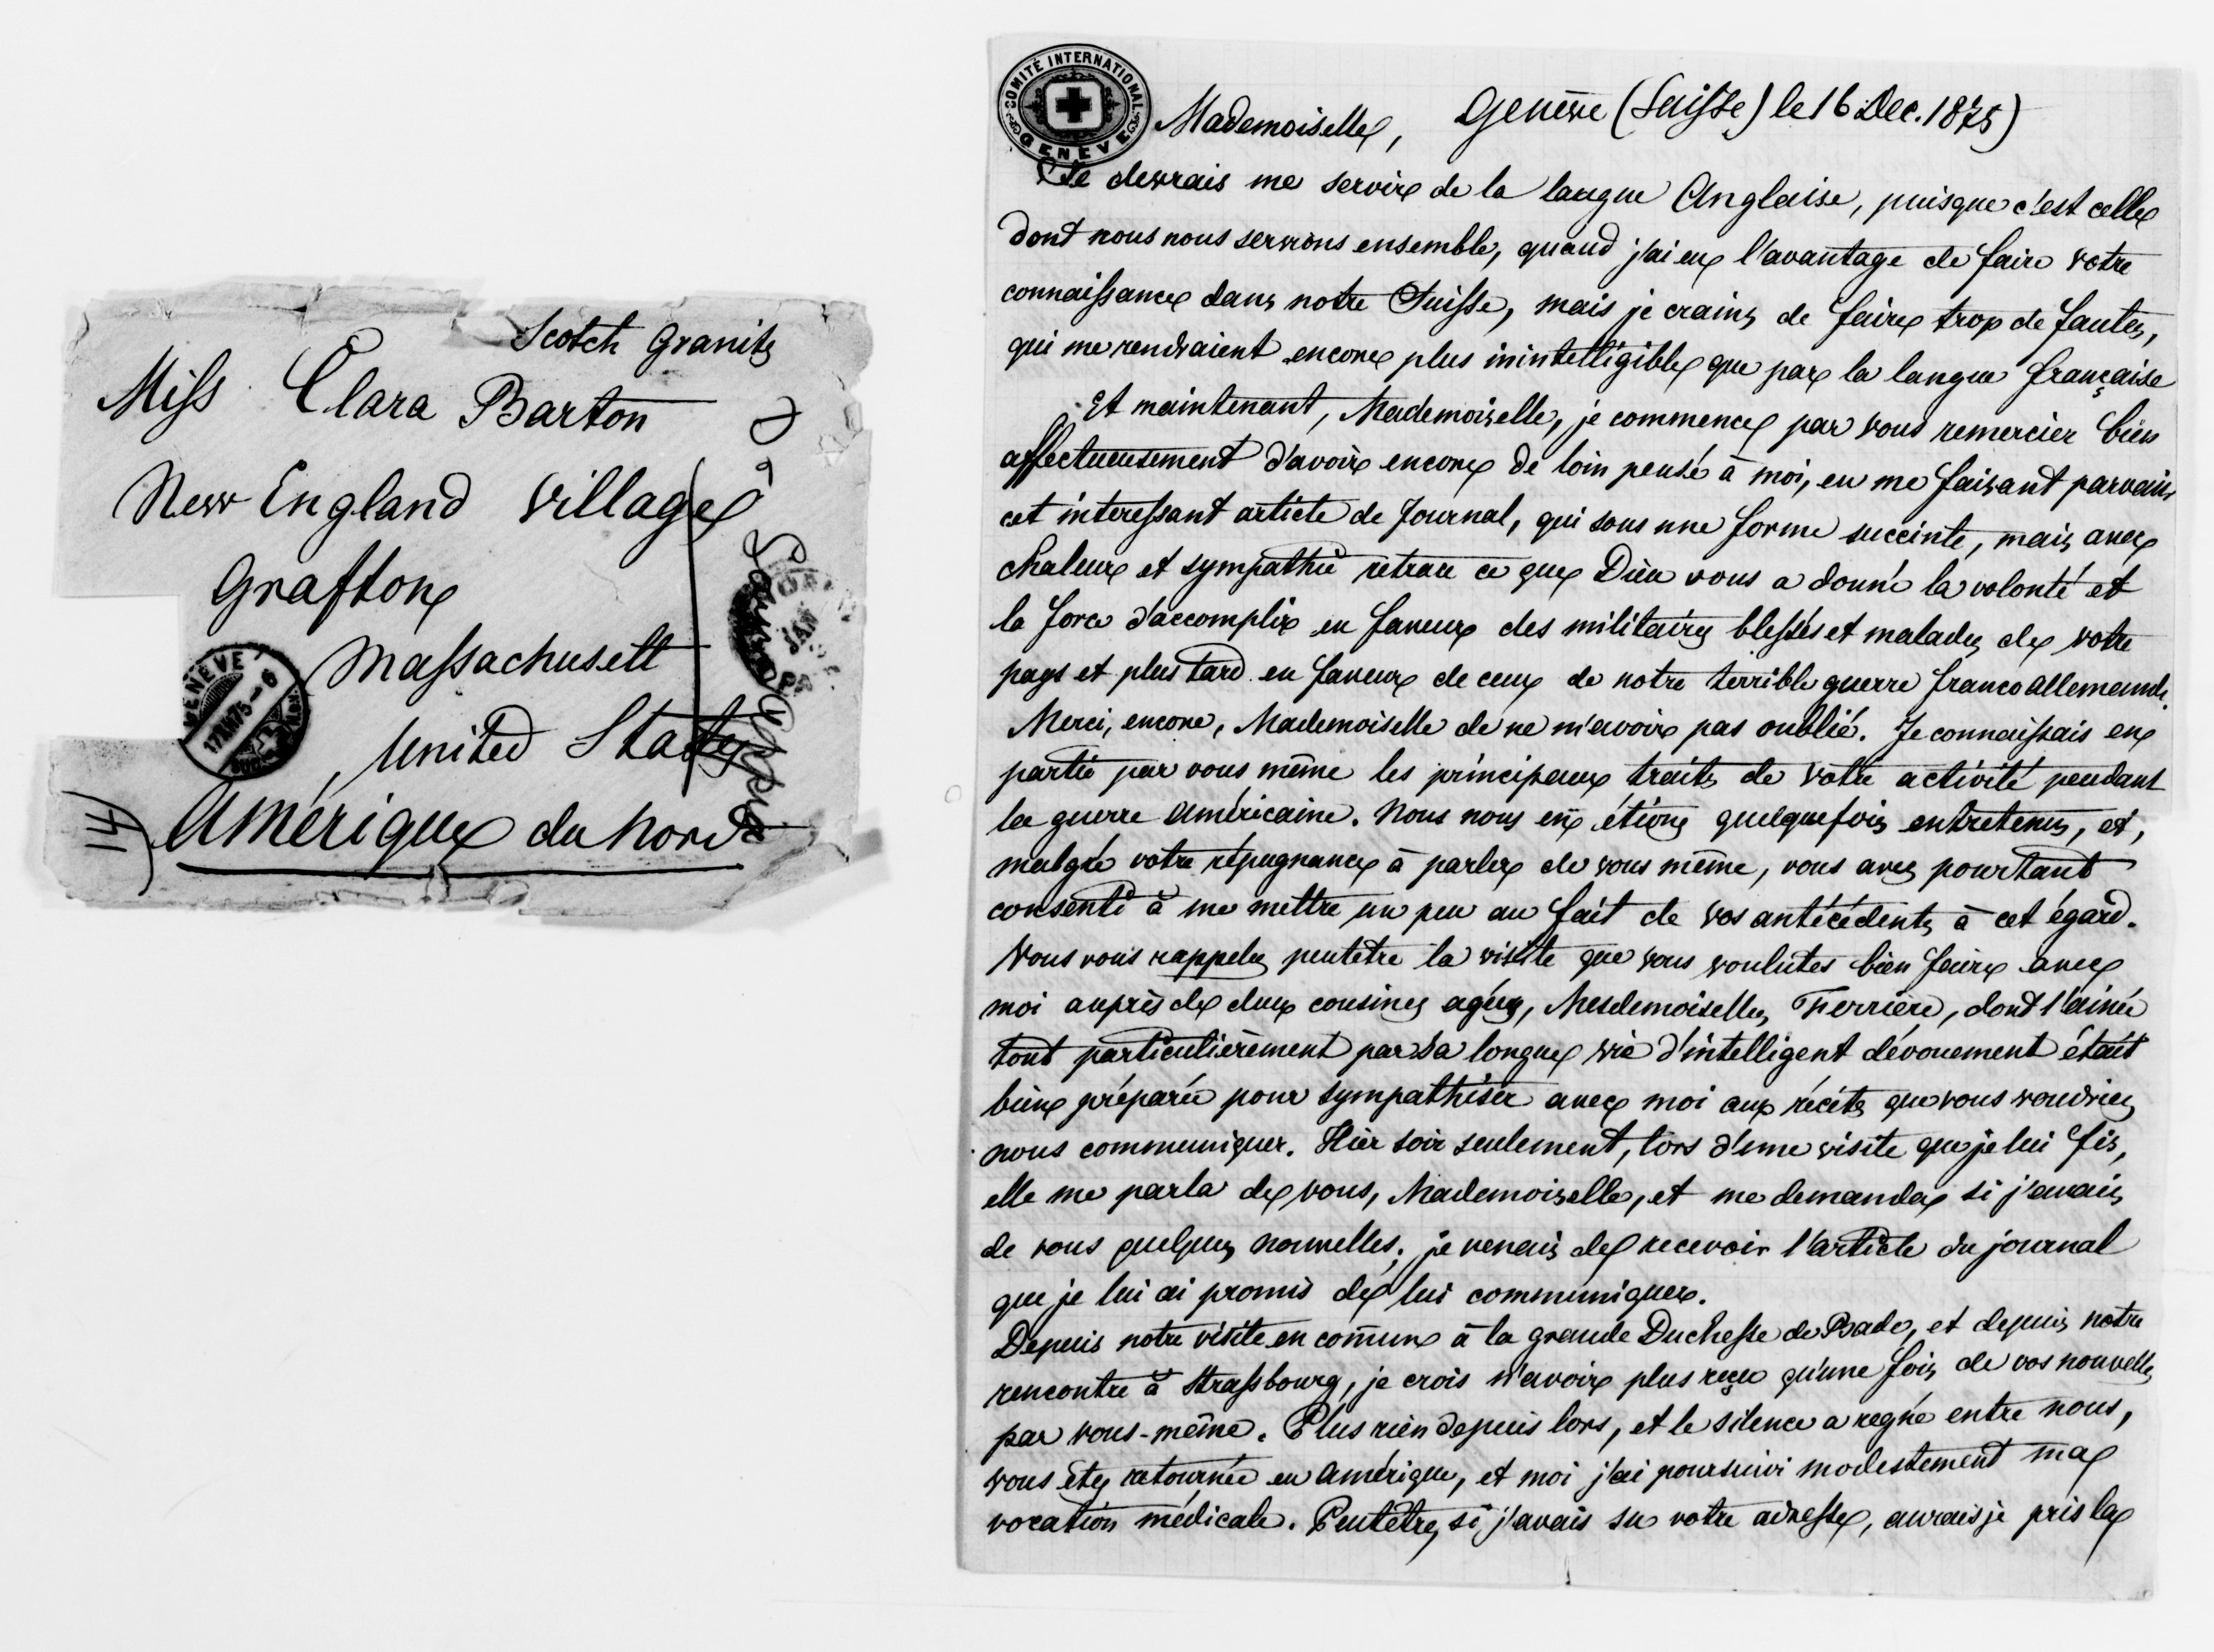 Scotch Granite
Miss Clara Barton
New England Village
Grafton
Massachusett
United States
Amérique du Nord
via
GENÈVE
17 XII 75-6
JAN
COMITÉ INTERNATIONAL
GENÈVE
Mademoiselle, Genève (Suisse) le 16 Dec. 1875)
Je devrais me servir de la langue Anglaise, puisque c'est celle
dont nous nous servions ensemble, quand j'ai eu l'avantage de faire votre
connaissance dans notre Suisse, mais je crains de faire trop de fautes,
qui me rendraient encore plus inintelligible que par la langue française
Et maintenant, Mademoiselle, je commence par vous remercier bien
affectueusement d'avoir encore de loin pensé à moi, en me faisant parvenir
cet interessant article de Journal, qui sous une forme succinte, mais avec
chaleur et sympathie retrace ce que Dieu vous a donné la volonté et
la force d'accomplir en faveur des militaires blessés et malades de votre
pays et plus tard en faveur de ceux de notre terrible guerre franco allemande.
Merci, encore, Mademoiselle de ne m'avoir pas oublié. Je connaissais en
partie par vous même les principaux traits de votre activité pendant
la guerre américaine. Nous nous en étions quelquefois entretenus, et,
malgré votre répugnance à parler de vous même, vous avez pourtant
consenti à me mettre un peu au fait de vos antécédents à cet égard.
Vous vous rappelez peutetre la visite que vous voulutes bien faire avec
moi auprès de deux cousines agées, Mesdemoiselles Ferrière, dont l'ainée
tout particulièrement par sa longue vie d'intelligent dévouement était
bien préparée pour sympathiser avec moi aux récits que vous voudriez
nous communiquer. Hier soir seulement, lors d'une visite que je lui fis,
elle me parla de vous, Mademoiselle, et me demanda si j'avais
de vous quelques nouvelles; je venais de recevoir l'article du journal
que je lui ai promis de lui communiquer.
Depuis notre visite en commun à la grande Duchesse de Bade, et depuis notre
rencontre à Strassbourg, je crois n'avoir plus reçu qu'une fois de vos nouvelles
par vous-même. Plus rien depuis lors, et le silence a regné entre nous,
vous êtes retournée en Amérique, et moi j'ai poursuivi modestement ma
vocation médicale. Peutêtre, si j'avais su votre adresse, aurais je pris la